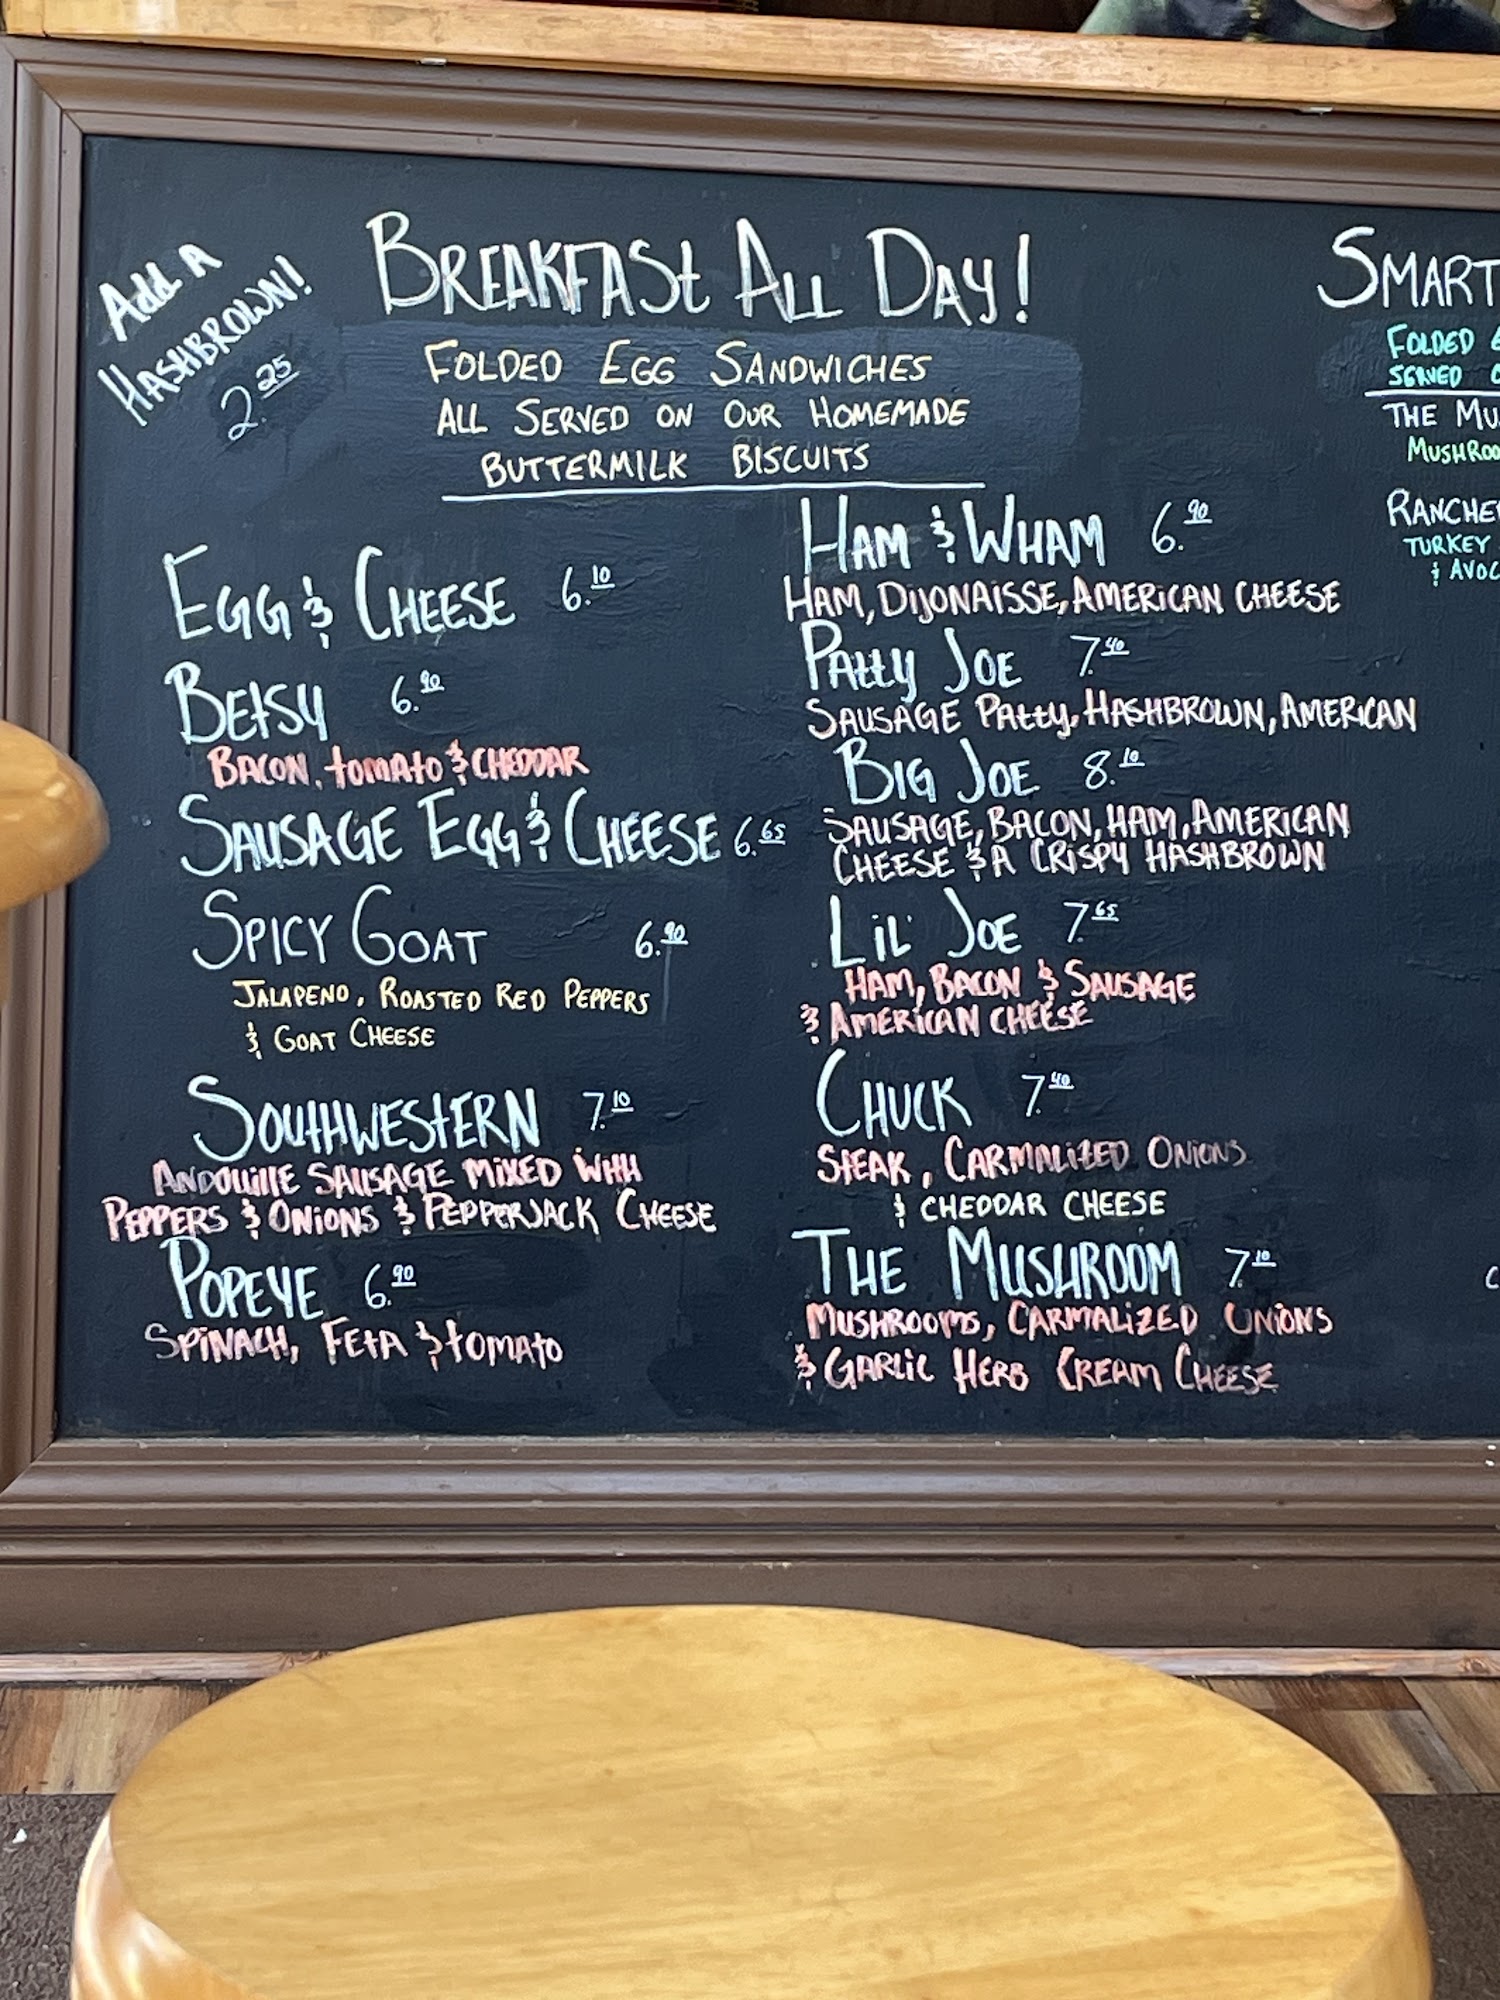 Add A
HASHBROWN!
2.25
BREAKFASt ALL DAY!
FOLDED EGG SANDWICHES
ALL SERVED ON OUR HOMEMADE
BUTTERMILK BISCUITS
EGG & CHEESE 6.10
BEtSY 6.90
BACON, tOMAtO & CHEDDAR
SAUSAGE EGG & CHEESE 6.65
SPICY GOAT 6.90
JALAPENO, ROASTED RED PEPPERS
& GOAT CHEESE
SOUtHWEStERN 7.10
ANDOUILLE SAUSAGE MiXED WitH
PEPPERS & ONiONS & PEPPERJACK CHEESE
POPEYE 6.90
SPiNACH, FEtA & tOMAtO
HAM & WHAM 6.90
HAM, DiJONAiSSE, AMERiCAN CHEESE
PAttY JOE 7.40
SAUSAGE PAttY, HASHBROWN, AMERiCAN
BIG JOE 8.10
SAUSAGE, BACON, HAM, AMERiCAN
CHEESE & A CRiSPY HASHBROWN
LiL' JOE 7.65
HAM, BACON & SAUSAGE
& AMERiCAN CHEESE
CHUCK 7.40
StEAK, CARMALiZED ONiONS
& CHEDDAR CHEESE
THE MUSHROOM 7.10
MUSHROOMS, CARMALiZED ONiONS
& GARLiC HERB CREAM CHEESE
SMART
FOLDED
SERVED
THE
RANCHE
TURKEY
&